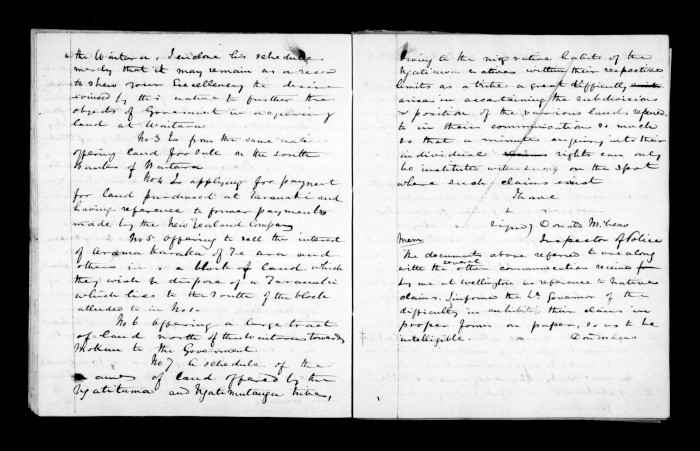 the Waitara, I enclose his schedule
merely that it may remain as a record
to shew your Excellency the desire
evinced by this native to further the
objects of Government in acquiring
land at Waitara
No 3 Is from the same native
offering land for sale on the South
banks of Waitara
No 4 Is applying for payment
for land purchased at Taranaki and
having reference to former payments
made by the New Zealand Company
No 5 Offering to sell the interest
of Arama Karaka of Te Ara and
others in a block of land which
they wish to dispose of a Taranaki
which lies to the South of the block
alluded to in No 1.
No 6 Offering a large tract
of land north of the Waitara towards
Mokau to the Government
No 7 A schedule of the
names of land offered by the
Ngatitama and Ngatimutunga tribe,
Owing to the migrative habits of the
Ngatiawa natives within their respective
limits as a tribe a great difficulty
arises in ascertaining the subdivisions
& position of the various land referred
to in their communications so much
so that a minute enquiry into their
individual rights can only
be institute with on the spot
where such claims exist
I have
Signed Donald McLean
Inspector of Police
Mem
The documents above referred to are along
with the several other communication received
by me at Wellington in reference to native
claims. I informed the Lt. Governor of the
difficulty in exhibiting their claims in
proper form on paper, so as to be
intelligible. Don McLean